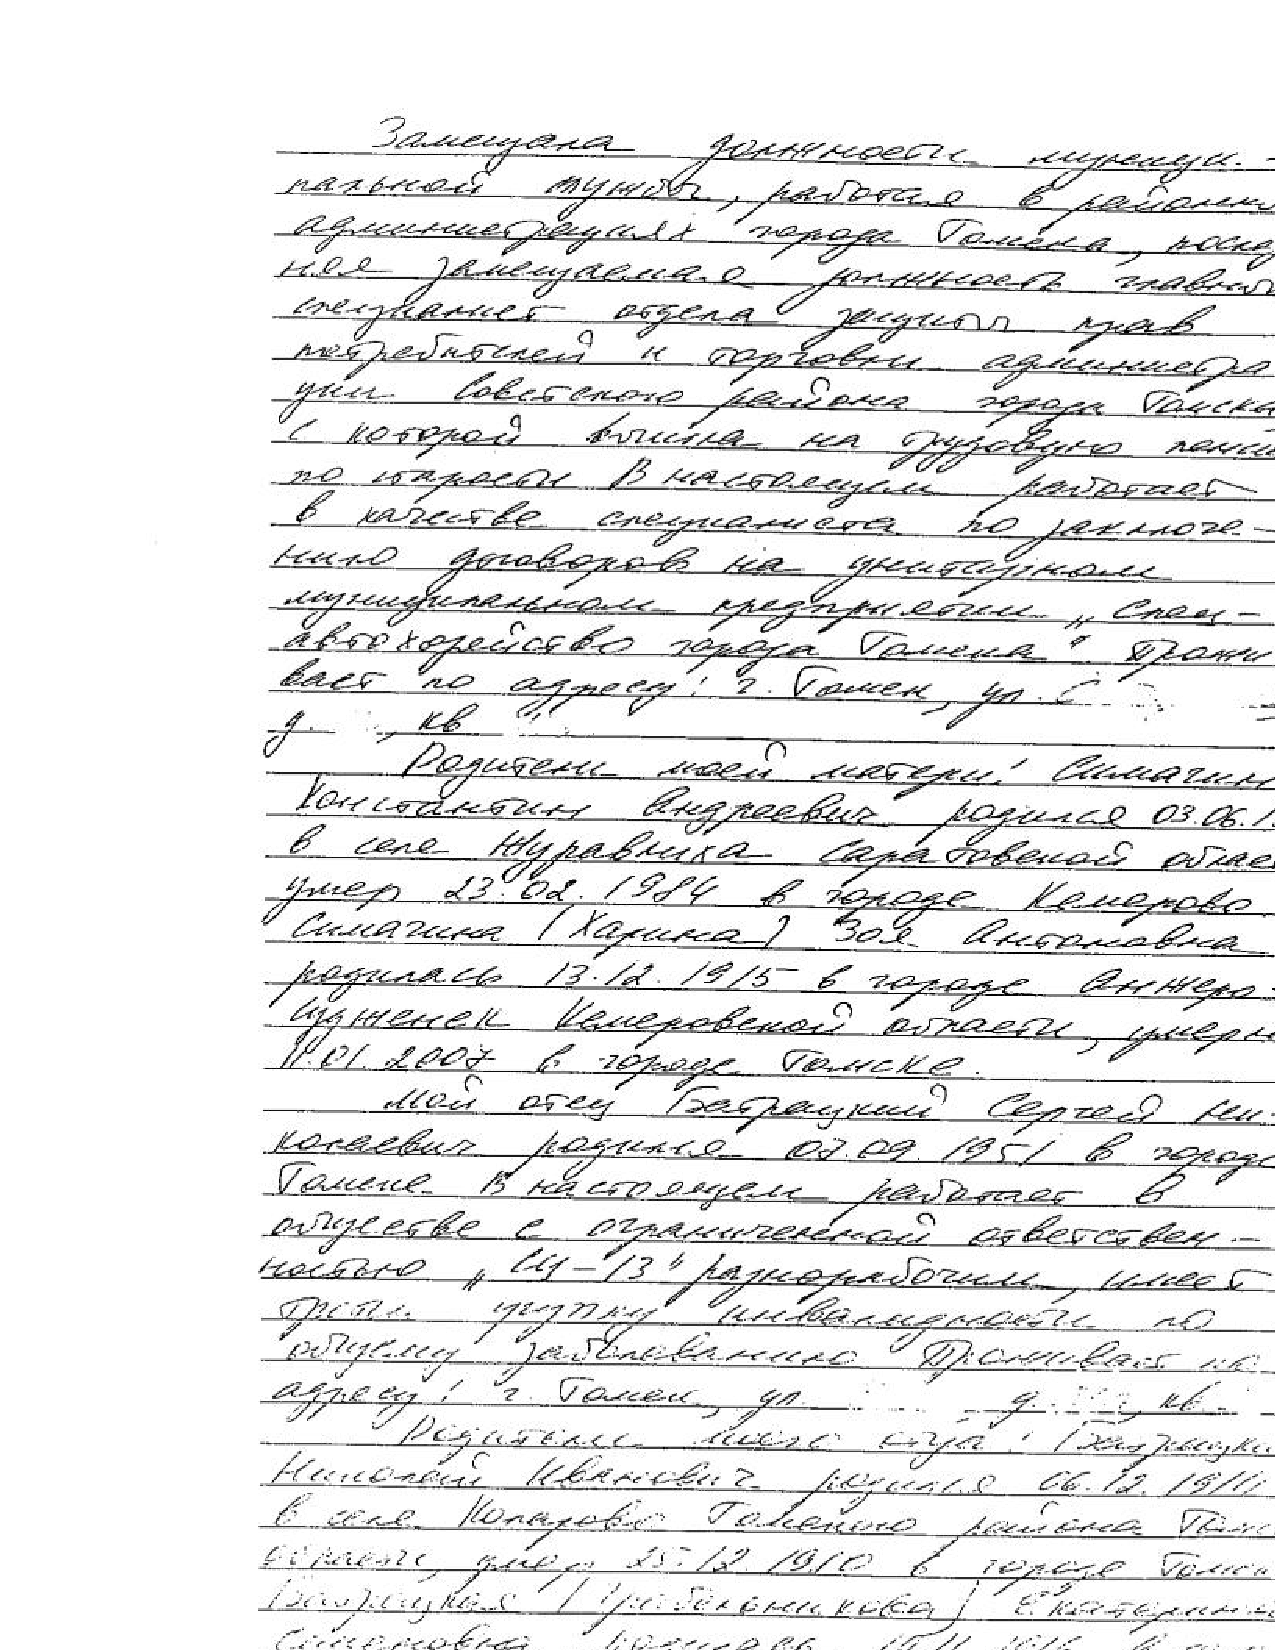 Замещала должности муници-
пальной службы, работая в районн
администрациях города Томска, послед
няя замещаемая должность главного
специалист отдела защиты прав
потребителей и торговли администра
ции Советского района города Томска
с которой вышла на трудовую пенси
по старости В настоящем работает
в качестве специалиста по заключе-
нию договоров на унитарном
муниципальном предприятии „Спец-
автохозяйство города Томска" Прожи
вает по адресу: г. Томск, ул. С
д. , кв
Родители моей матери: Симагин
Константин Андреевич родился 03.06.1
в селе Журавлиха Саратовской облас
умер 23.02.1984 в городе Кемерово
Симагина (Харина) Зоя Антоновна
родилась 13.12.1915 в городе Анжеро-
Судженск Кемеровской области, умерл
11.01.2007 в городе Томске.
Мой отец Сергей Ни-
колаевич родился 07.09.1951 в городе
Томске. В настоящем работает в
обществе с ограниченной ответствен-
ностью „СЦ-13" разнорабочим, имеет
третью группу инвалидности по
общему заболеванию Проживает по
адресу: г. Томск, ул. д. , кв.
Родители моего отца:
Николай Иванович родился 06.12.191
в селе Томского района Томс
области, умер 25.12. в городе Томск
Екатерина